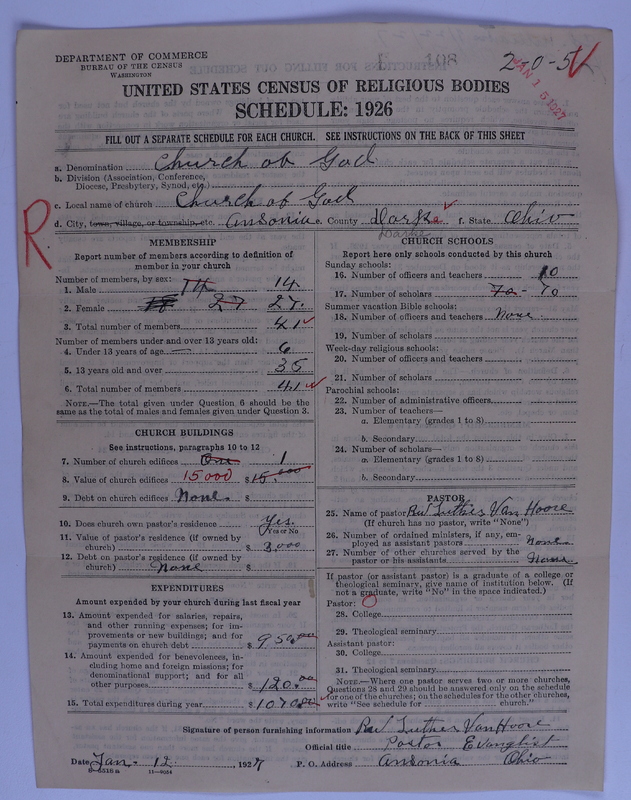 DEPARTMENT OF COMMERCE
BUREAU OF THE CENSUS
WASHINGTON
108
2-0-5
JAN 15 1927
UNITED STATES CENSUS OF RELIGIOUS BODIES
SCHEDULE: 1926
FILL OUT A SEPARATE SCHEDULE FOR EACH CHURCH. SEE INSTRUCTIONS ON THE BACK OF THIS SHEET
a. Denomination Church of God
b. Division (Association, Conference,
Diocese, Presbytery, Synod, etc.)
c. Local name of church Church of God
d. City, town, village, or township, etc. Ansonia e. County Darke f. State Ohio
Darke
R
MEMBERSHIP
Report number of members according to definition of
member in your church
Number of members, by sex:
1. Male 14 14
2. Female 27 27
3. Total number of members 41
Number of members under and over 13 years old:
4. Under 13 years of age — 6
5. 13 years old and over 35
6. Total number of members 41
NOTE.—The total given under Question 6 should be the
same as the total of males and females given under Question 3.
CHURCH BUILDINGS
See instructions, paragraphs 10 to 12
7. Number of church edifices One 1
8. Value of church edifices 15000 $ 15.000
9. Debt on church edifices None $
10. Does church own pastor's residence Yes.
Yes or No
11. Value of pastor's residence (if owned by
church) $ 3.000
12. Debt on pastor's residence (if owned by
church) None $
EXPENDITURES
Amount expended by your church during last fiscal year
13. Amount expended for salaries, repairs,
and other running expenses; for im-
provements or new buildings; and for
payments on church debt $ 950.00
14. Amount expended for benevolences, in-
cluding home and foreign missions; for
denominational support; and for all
other purposes $ 120.00
15. Total expenditures during year $ 1070
CHURCH SCHOOLS
Report here only schools conducted by this church
Sunday schools:
16. Number of officers and teachers 10
17. Number of scholars 70 - 70
Summer vacation Bible schools:
18. Number of officers and teachers None
19. Number of scholars
Week-day religious schools:
20. Number of officers and teachers
21. Number of scholars
Parochial schools:
22. Number of administrative officers
23. Number of teachers—
a. Elementary (grades 1 to 8)
b. Secondary
24. Number of scholars—
a. Elementary (grades 1 to 8)
b. Secondary
PASTOR
25. Name of pastor Rev Luther Van Hoose
(If church has no pastor, write "None")
26. Number of ordained ministers, if any, em-
ployed as assistant pastors None
27. Number of other churches served by the
pastor or his assistants None
If pastor (or assistant pastor) is a graduate of a college or
theological seminary, give name of institution below. (If
not a graduate, write "No" in the space indicated.)
Pastor: O
28. College
29. Theological seminary
Assistant pastor:
30. College
31. Theological seminary
NOTE.—Where one pastor serves two or more churches,
Questions 28 and 29 should be answered only on the schedule
for one of the churches; on the schedules for the other churches,
write "See schedule for church."
Signature of person furnishing information Rev Luther Van Hoose
Official title Pastor Evanglist
Date Jan. 12, 1927 P. O. Address Ansonia Ohio
8-5518a 11-9054